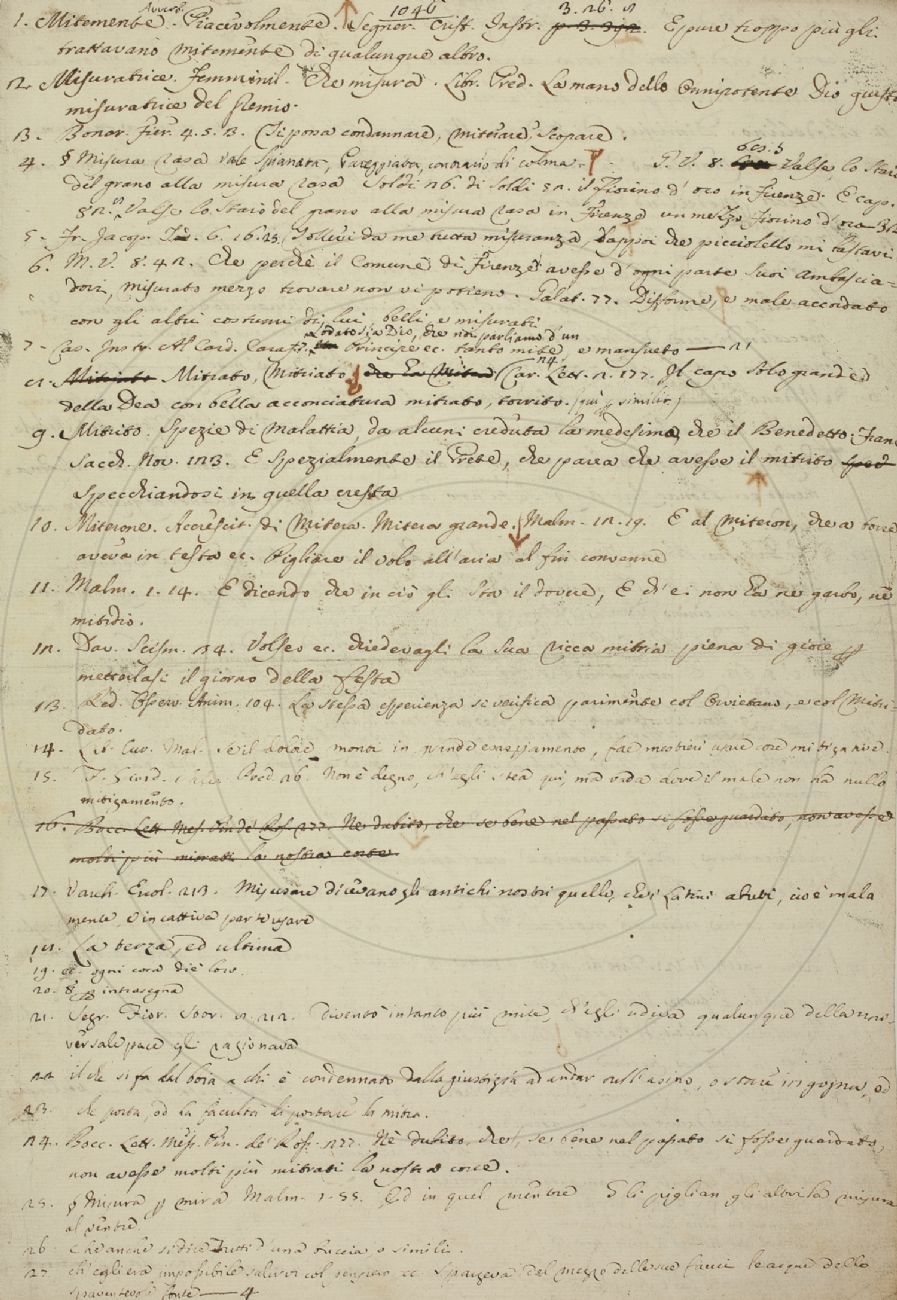 1046
Avverb. 3. 26. 2
1. Mitemente. Piacevolmente. Segner. Crist. Instr. E pure troppo più gli
trattavano mitemente di qualunque altro.
2. Misuratrice. Femminil. Che misura. Libr. Pred. La mano dello Onnipotente Dio giusta
misuratrice del premio.
3. Bonar. Fier. 4. 5. 3. Si possa condannare, mitriare, Scopare.
4. § Misura rasa vale Spianata, Pareggiata, contrario di colma. G. V. 8. Valse lo Staio
del grano alla misura rasa Soldi 26. di Soldi 52. il Fiorino d'oro in Firenze. E cap.
Valse lo Staio del grano alla misura rasa in Firenze un mezzo fiorino d'oro
5. Fr. Jacop. T. 6. 16. 25. Sollevi da me tutta misuranza, Dappoi che picciolello mi
6. M. V. 8. 42. Che perchè il Comune di Firenze avesse d'ogni parte suoi ambascia-
dori, misurato mezzo trovare non vi potieno. Galat. 77. Difforme, e male accordato
con gli altri costumi di lui belli, e misurati
Lodato sia Dio, che noi parliamo d'un
7. Cas. Instr. Al Card. Caraff. Principe ec. tanto mite, e mansueto
Mitriato, Mitriato Car. Lett. 2. 177. Il capo Solo grande
della Dea con bella acconciatura mitrato, torrito.
9. Mitrito. Spezie di malattia, da alcuni creduta la medesima, che il Benedetto. Fran
Sacch. Nov. 123. E spezialmente il Prete, che parea che avesse il mitrito
specchiandosi in quella cresta
10. Miterone. Accrescit. di Mitera. Mitera grande. Malm. 12. 19. E al miteron, che a torre
aveva in testa ec. Pigliare il volo all'aria al fin convenne
11. Malm. 1. 14. E dicendo che in ciò gli sta il dovere, E ch'ei non ha nè garbo, nè
mitidio.
12. Dav. Scism. 34. Volseo ec. chiedevagli la sua ricca mitria piena di gioie
mettersilasi il giorno della festa
13. Red. Osserv. Anim. 104. La stessa esperienza si verifica parimente col Orvietano, e col Mitri-
dato.
14. Lib. Cur. Mal. Se il dolore monti in grande
15. Pred. 26. Non è degno, ch'egli stea qui, ma vada dove il male non ha nullo
mitigamento.
16. Bocc. Lett. Mess. Pin. de' Ros. 277. Nè dubito, che se bene nel passato si fosse guardato, non avesse
molti più mitrati la nostra corte.
17. Varch. Ercol. 213. Misusare dicevano gli antichi nostri quello, che i Latini abuti, cioè mala
mente, o in cattiva parte usare
La terza, ed ultima
19. ogni cosa diè loro.
20. intrasegna
21. Segr. Fior. Stor. 2. 212. Diventò intanto più mite, ch'egli udiva qualunque della uni-
versale pace gli ragionava
22. il che si fa dal boia a chi è condennato dalla giustizia ad andar sull'asino, o stare in gogna, od
23. che porta, od ha facoltà di portare la mitra.
24. Bocc. Lett. Mess. Pin. de' Ros. 277. Nè dubito, che, se bene nel passato si fosse guardato,
non avesse molti più mitrati la nostra corte.
25. § Misura per mira Malm. 1. 55. Ed in quel mentre Gli piglian gli altri la misura
al ventre.
26. Che anche si dice d'una buccia, o simili.
27. ch'egli era impossibile salvarsi col pensiero ec. Spargeva del mezzo delle sue fauci le acque dello
spaventevole fonte 4